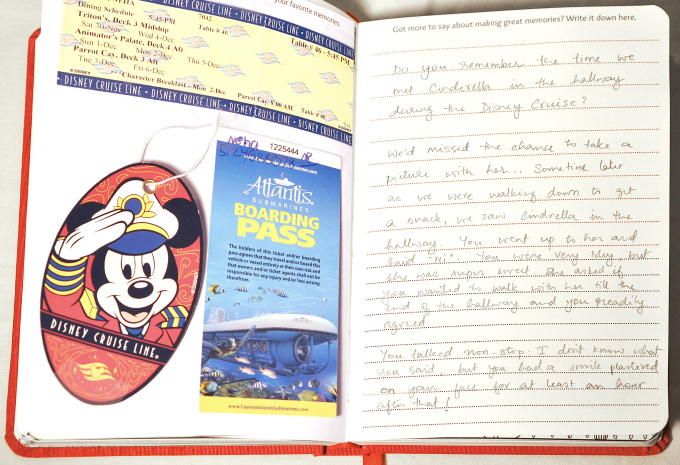 your favorite memories.
NEHA
Dining Schedule 5:45 PM 7042
Triton's, Deck 3 Midship Table # 46
Sat 30-Nov Wed 4-Dec
Animator's Palate, Deck 4 Aft
Sun 1-Dec Mon 2-Dec Thu 5-Dec
Parrot Cay, Deck 3 Aft
Tue 3-Dec Fri 6-Dec
Table # 46 - 5:45 PM
©DISNEY *** Character Breakfast - Mon 2-Dec Parrot Cay 8:00 AM Table # 46
DISNEY CRUISE LINE • DISNEY CRUISE LINE • DISNEY CRUISE LINE
DISNEY CRUISE LINE • DISNEY CRUISE LINE • DISNEY CRUISE LINE
DISNEY CRUISE LINE®
Neha
1225444
Atlantis
SUBMARINES
BOARDING
PASS
The holders of this ticket and/or boarding
pass agrees that they travel and/or board this
vehicle or vessel entirely at their own risk and
that owners and/or ticket agents shall not be
responsible for any injury and/or loss arising
therefrom.
www.CaymanIslandsSubmarines.com
Got more to say about making great memories? Write it down here.
Do you remember the time we
met Cinderella in the hallway
during the Disney Cruise?
We'd missed the chance to take a
picture with her... Sometime later
as we were walking down to get
a snack, we saw Cindrella in the
hallway. You went up to her and
said "Hi". You were very shy, but
she was super sweet. She asked if
you wanted to walk with her till the
end of the hallway and you readily
agreed.
You talked non-stop. I don't know what
you said, but you had a smile plastered
on your face for at least an hour
after that!